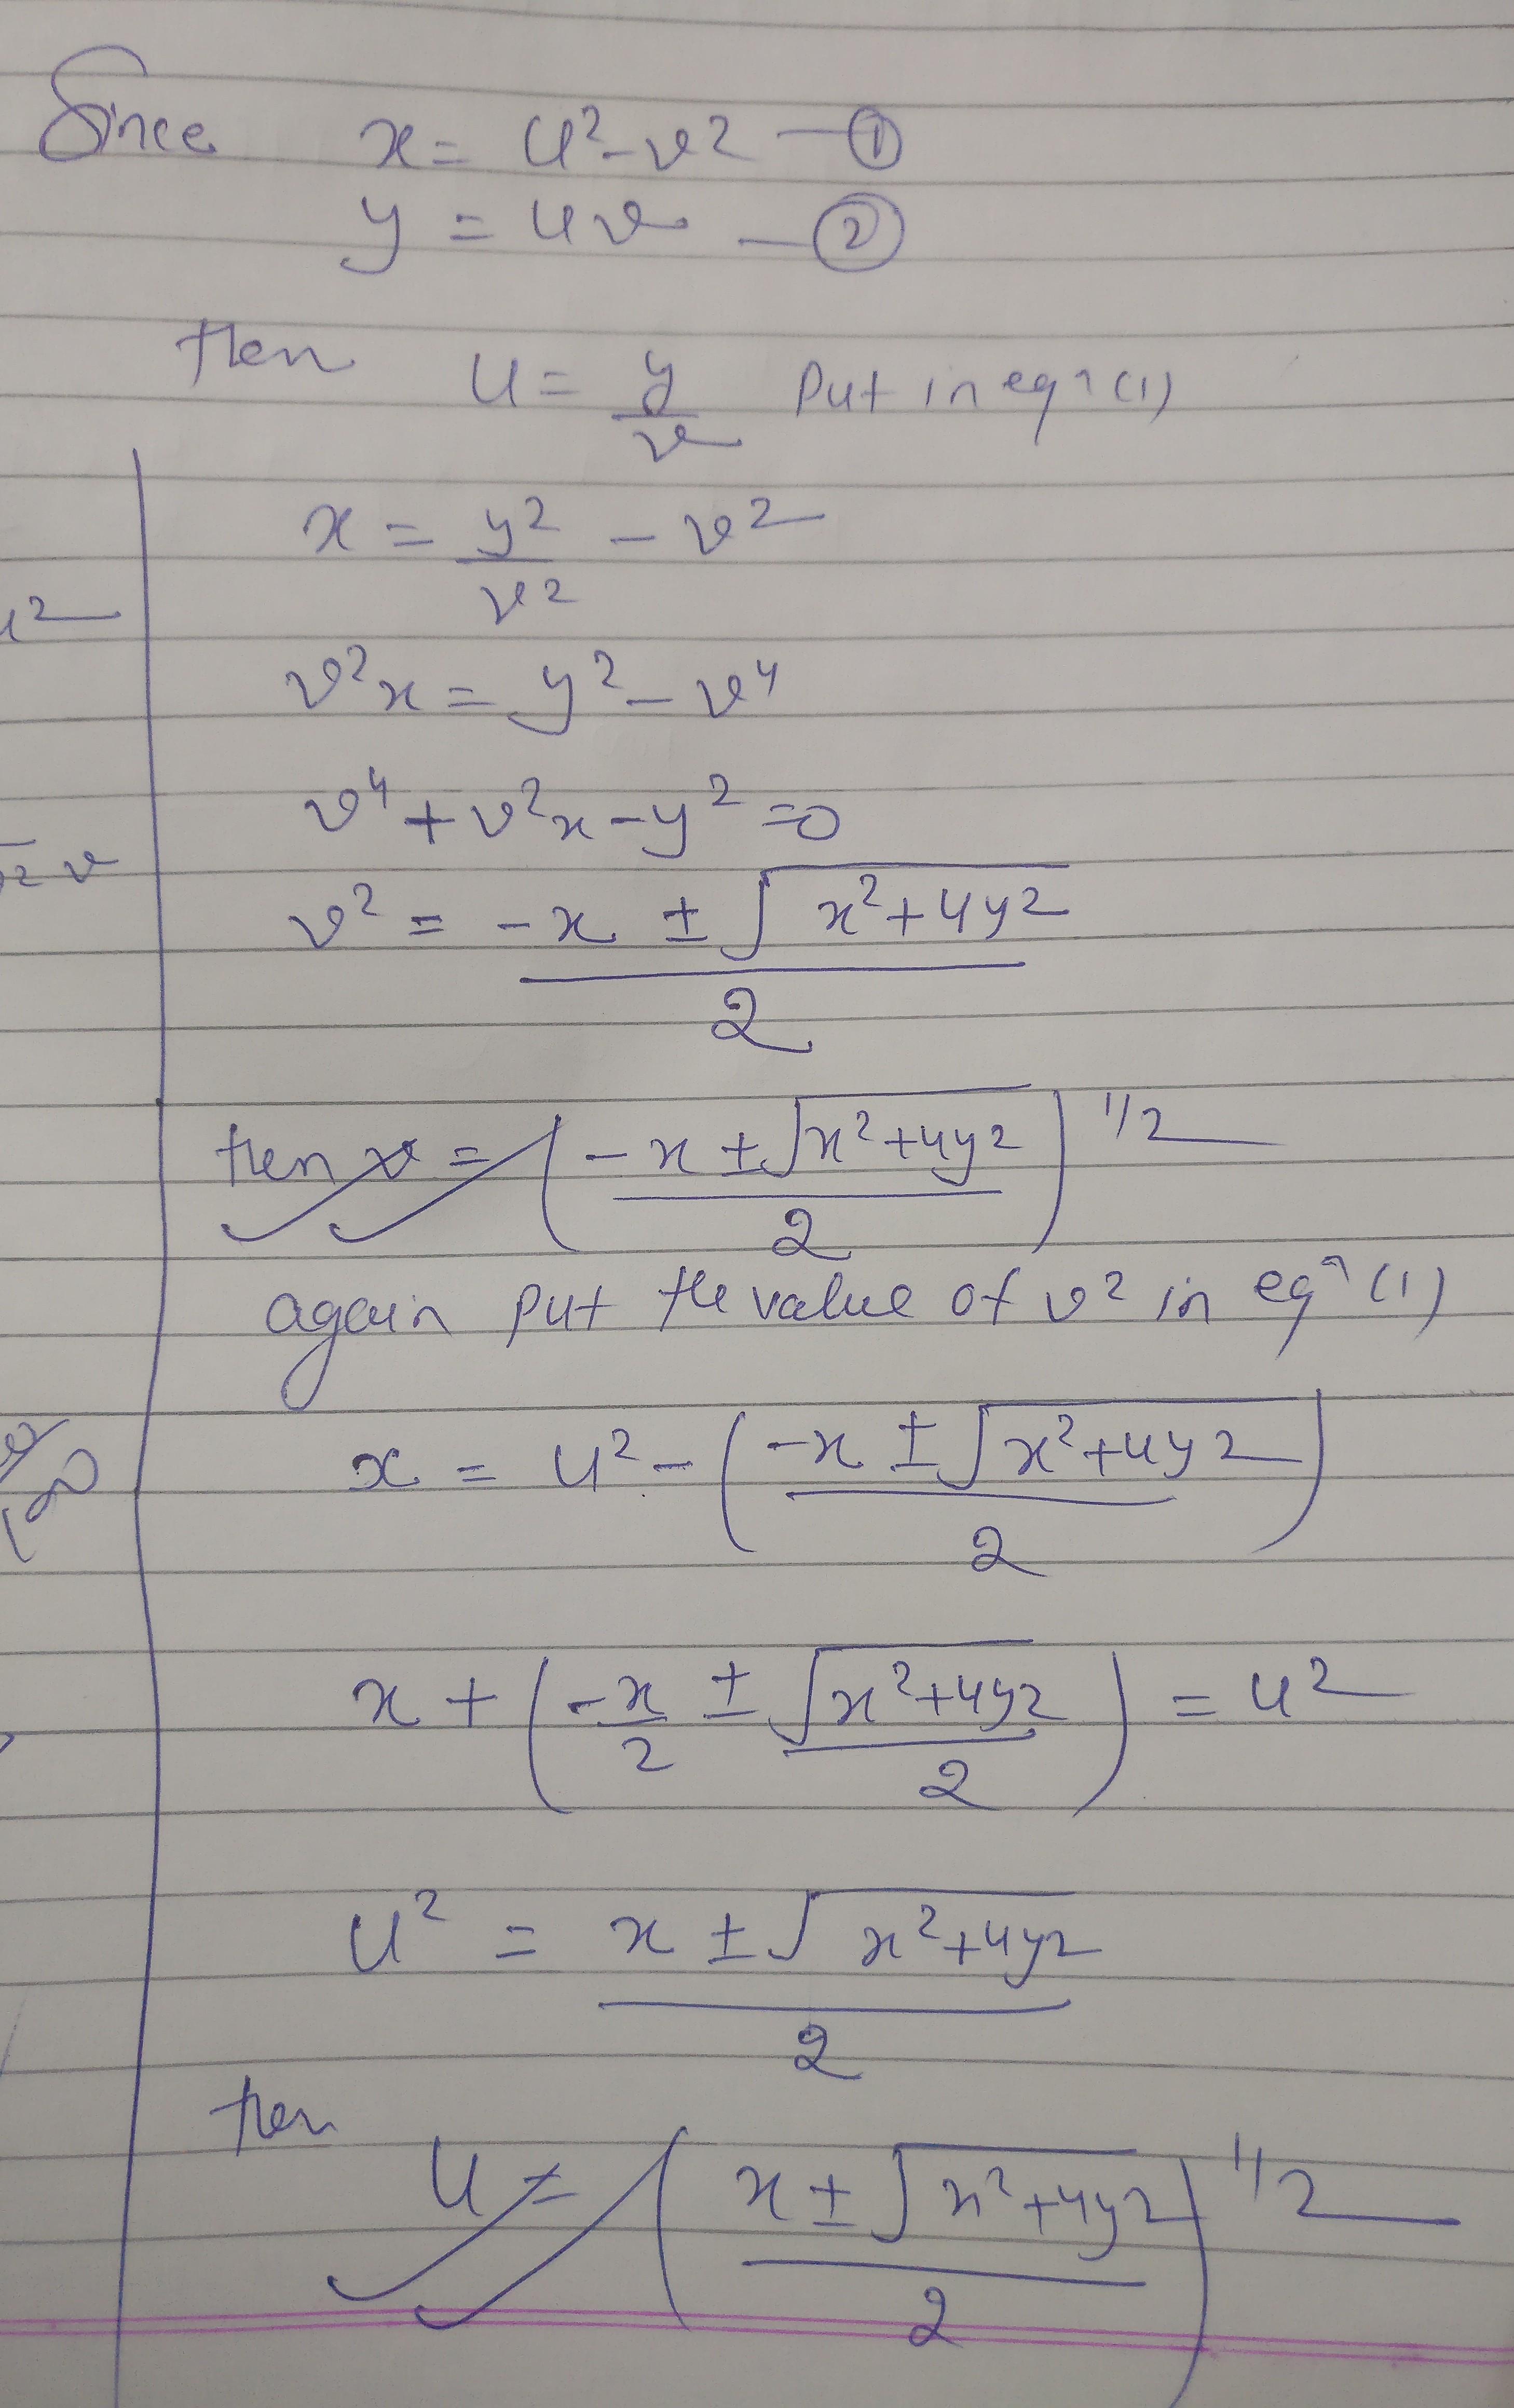 Since x = u² - v² — ①
y = uv — ②
then u = y/v Put in eqⁿ (1)
x = y²/v² - v²
v²x = y² - v⁴
v⁴ + v²x - y² = 0
v² = (-x ± √(x²+4y²))/2
then v = ((-x ± √(x²+4y²))/2)^1/2
again put the value of v² in eqⁿ (1)
x = u² - ((-x ± √(x²+4y²))/2)
x + (-x/2 ± √(x²+4y²)/2) = u²
u² = (x ± √(x²+4y²))/2
then
u = ((x ± √(x²+4y²))/2)^1/2